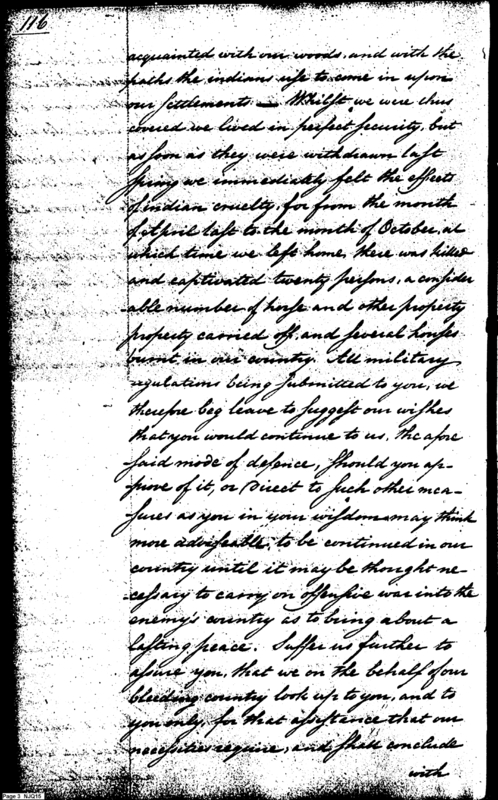 116
acquainted with our woods, and with the
paths the indians use to come in upon
our settlements — Whilst we were thus
covered we lived in perfect security, but
as soon as they were withdrawn last
spring we immediately felt the effects
of indian cruelty, for from the month
of April last to the month of October, at
which time we left home, there was killed
and captivated twenty persons, a consider
able number of horse and other property
property carried off, and several houses
burnt in our country. All military
regulations being submitted to you, we
therefore beg leave to suggest our wishes
that you would continue to us, the afore
said mode of defence, should you ap-
prove of it, or Direct to such other mea-
sures as you in your wisdom may think
more adviseable, to be continued in our
country until it may be thought ne-
cessary to carry on offensive war into the
enemy's country as to bring about a
lasting peace. Suffer us further to
assure you, that we on the behalf of our
bleeding country look up to you, and to
you only, for that assistance that our
necessities require, and shall conclude
with
Page 3 NJQ16